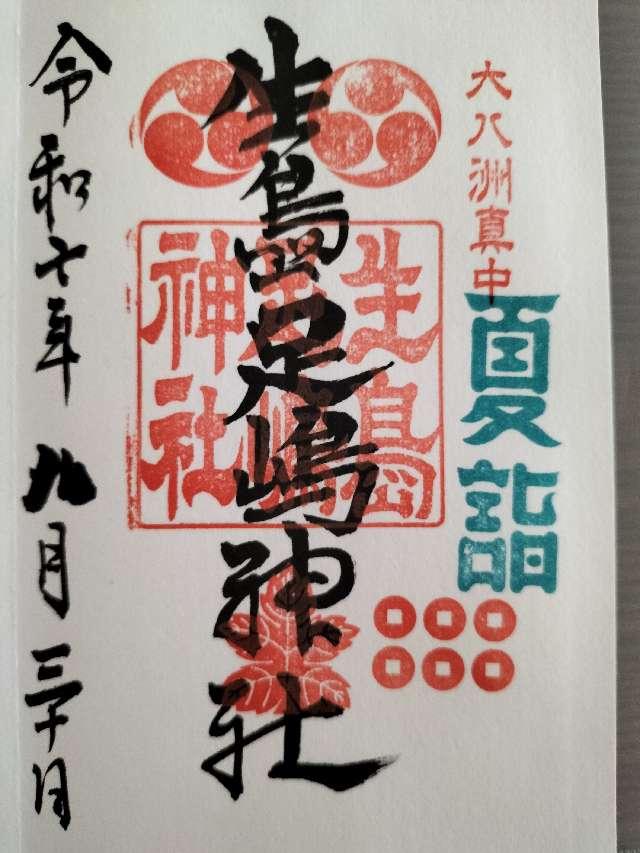 大八洲真中
夏詣
生島足嶋神社
生島
足嶋
神社
令和七年 九月 三十日